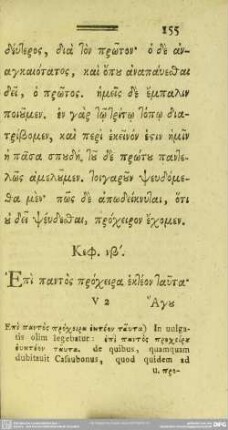 155
δεύτερος, διὰ τὸν πρῶτον· ὁ δὲ ἀν-
αγκαιότατος, καὶ ὅπυ ἀναπαύεσθαι
δεῖ, ὁ πρῶτος. ἡμεῖς δὲ ἔμπαλιν
ποιῦμεν. ἐν γὰρ τῷ τρίτῳ τόπῳ δια-
τρίβομεν, καὶ περὶ ἐκεῖνόν ἐστιν ἡμῖν
ἡ πᾶσα σπυδή. τῦ δὲ πρώτυ παντε-
λῶς ἀμελῦμεν. τοιγαρῦν ψευδόμε-
θα μέν· πῶς δὲ ἀποδείκνυται, ὅτι
ὐ δεῖ ψεύδεσθαι, πρόχειρον ἔχομεν.
Κεφ. ιβʹ.
Ἐπὶ παντὸς πρόχειρα ἑκτέον ταῦτα·
V 2 Ἄγυ
Επι παντος πρόχειρα ἑκτέον ταῦτα) In vulga-
tis olim legebatur: ἐπι παντος προχειρα
ευκτεον ταυτα. de quibus, quamquam
dubitauit Casaubonus, quod quidem ad
u. πρι-